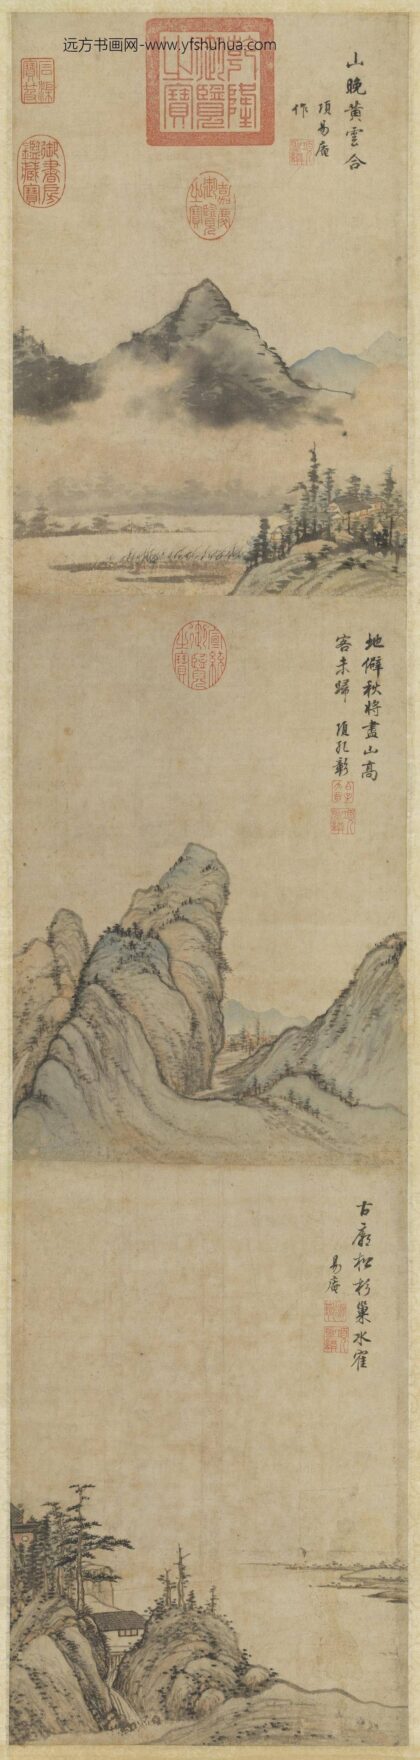 远方书画网-www.yfshuhua.com
山晚黃雲合
項易庵
作
乾隆御覽之寶
石渠寶笈
御書房鑑藏寶
嘉慶御覽之寶
地僻秋將盡山高
客未歸 項孔彰
宣統御覽之寶
古廟松杉巢水隺
易庵